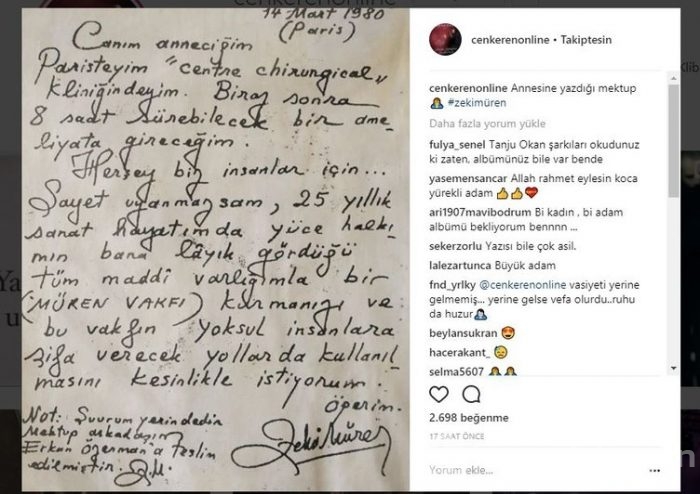 cenkerenonline
14 Mart 1980
(Paris)
Canım anneciğim
Paristeyim "centre chirungical"
Kliniğindeyim. Biraz sonra
8 saat sürebilecek bir ame-
liyata gireceğim.
Herşey biz insanlar için...
Şayet uyanmazsam, 25 yıllık
sanat hayatımda yüce halkı-
mın bana lâyık gördüğü
tüm maddî varlığımla bir
(MÜREN VAKFI) kurmanızı ve
bu vakfın yoksul insanlara
şifa verecek yollarda kullanıl-
masını kesinlikle istiyorum.
Öperim.
Not: Şuurum yerindedir
Mektup arkadaşım
Erkan Özerman'a teslim
edilmiştir. Z.M.
Zeki Müren
cenkerenonline • Takiptesin
cenkerenonline Annesine yazdığı mektup
#zekimüren
Daha fazla yorum yükle
fulya_senel Tanju Okan şarkıları okudunuz
ki zaten, albümünüz bile var bende
yasemensancar Allah rahmet eylesin koca
yürekli adam 👍👍❤️
ari1907mavibodrum Bi kadın , bi adam
albümü bekliyorum bennnn ...
sekerzorlu Yazısı bile çok asil.
lalezartunca Büyük adam
fnd_yrlky @cenkerenonline vasiyeti yerine
gelmemiş... yerine gelse vefa olurdu..ruhu
da huzur
beylansukran 😍
hacerakant_ 😥
selma5607
2.698 beğenme
17 SAAT ÖNCE
Yorum ekle...